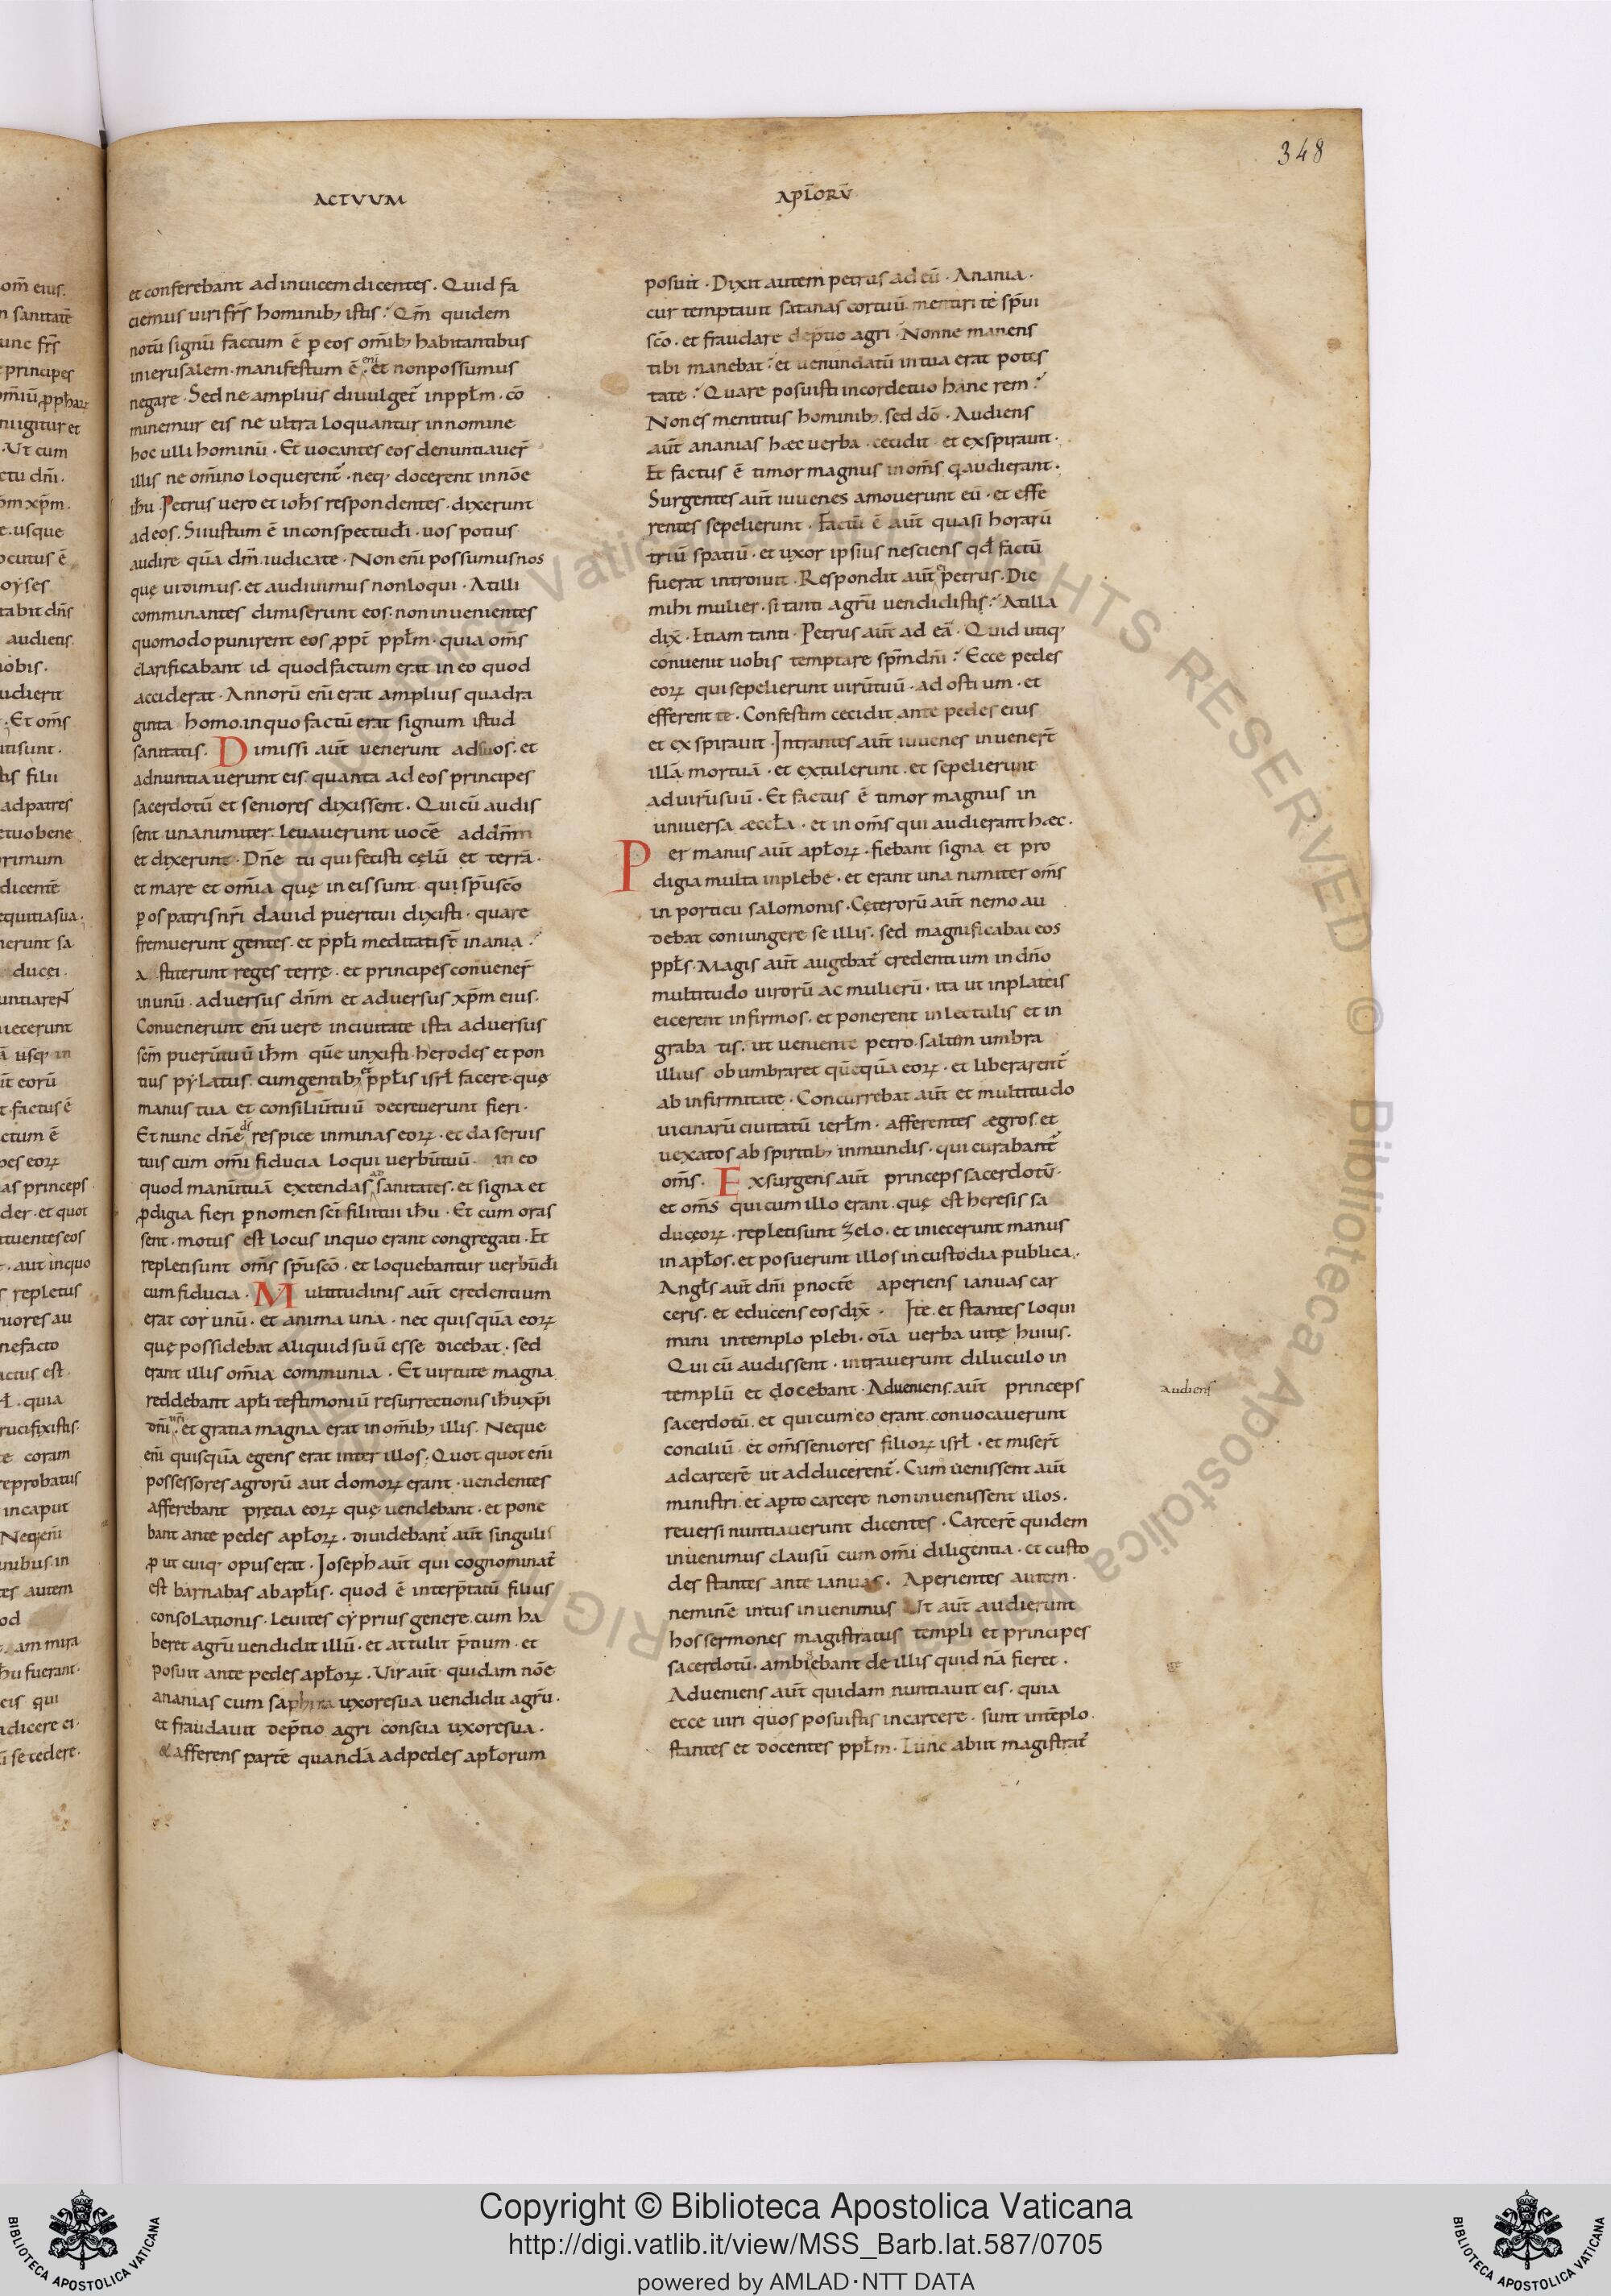 348
ACTVUM
APL̄ORŪ
et conferebant adinuicem dicentes. Quid fa
ciemus uiri frs̄ hominib; istis? Qm̄ quidem
notū signū factum ē ꝑ eos om̄ib; habitantibus
inierusalem. manifestum ē. et nonpossumus
negare. Sed ne amplius diuulget̄ inppłm. cō
minemur eis ne ultra loquantur innomine
hoc ulli hominū. Et uocantes eos denuntiauer̄
illis ne om̄ino loquerent̄. neq; docerent in nōe
ihu̅. Petrus uero et ioh̅s respondentes. dixerunt
adeos. Siiustum ē inconspectudı̄. uos potius
audire quā dm̄. iudicate. Non eni̅ possumusnos
quę uidimus. et audiuimus nonloqui. Atilli
comminantes dimiserunt eos. noninuenientes
quomodo punirent eos ꝓpt̄ ppłm. quia om̄s
clarificabant id quod factum erat in eo quod
acciderat. Annorū eni̅ erat amplius quadra
ginta homo. inquo factū erat signum istud
sanitatis. Dimissi aut̄ uenerunt adsuos. et
adnuntiauerunt eis. quanta ad eos principes
sacerdotū et seniores dixissent. Qui cū audis
sent unanimiter. leuauerunt uocē addm̄
et dixerunt. Dn̄e tu qui fecisti cęlū et terrā.
et mare et om̄ia quę in eis sunt. qui spūscō
ꝑ os patris nr̄i dauid pueritui dixisti. quare
fremuerunt gentes. et ppłi meditatist̄ inania?
astiterunt reges terrę. et principes conuener̄
inunū. aduersus dn̄m et aduersus xpm̄ eius.
Conuenerunt eni̅ uere inciuitate ista aduersus
scm̄ puerūtuū ih̅m quē unxisti. herodes et pon
tius pẏlatus. cumgentib; et ppłis isrł facere. quę
manus tua et consiliūtuū decreuerunt fieri.
Et nunc dn̄e respice inminas eoꝝ. et da seruis
tuis cum om̄i fiducia loqui uerbūtuū. in eo
quod manūtuā extendas ad sanitates. et signa et
ꝓdigia fieri ꝑ nomen sci̅ filiitui ihu̅. Et cum oras
sent. motus est locus inquo erant congregati. Et
repletisunt om̄s spūscō. et loquebantur uerbūdı̄
cum fiducia. Multitudinis aut̄ credentium
erat cor unū. et anima una. nec quisquā eoꝝ
quę possidebat aliquid suū esse dicebat. sed
erant illis om̄ia communia. Et uirtute magna
reddebant apłi testimoniū resurrectionis ihu̅xp̄i
dn̄i nr̄i. et gratia magna erat in om̄ib; illis. Neque
eni̅ quisquā egens erat inter illos. Quot quot eni̅
possessores agrorū aut domoꝝ erant. uendentes
afferebant pretia eoꝝ quę uendebant. et pone
bant ante pedes apłoꝝ. diuidebant̄ aut̄ singulis
ꝓ ut cuiq; opuserat. Joseph aut̄ qui cognominat̄
est barnabas abapłis. quod ē interp̄tatū filius
consolationis. Leuites cẏprius genere. cum ha
beret agrū uendidit illū. et attulit p̄tium. et
posuit ante pedes apłoꝝ. Uir aut̄ quidam nōe
ananias cum saphira uxoresua uendidit agrū.
et fraudauit dep̄tio agri conscia uxoresua.
& afferens partē quandā adpedes apłorum
posuit. Dixit autem petrus ad eū. Anania.
cur temptauit satanas cortuū mentiri te spūi
scō. et fraudare dep̄tio agri? Nonne manens
tibi manebat? et uenundatū intua erat potes
tate? Quare posuisti incordetuo hanc rem?
Nones mentitus hominib; sed dō. Audiens
aut̄ ananias hæc uerba. cecidit et exspirauit.
Et factus ē timor magnus in om̄s q̄ audierant.
Surgentes aut̄ iuuenes amouerunt eū. et effe
rentes sepelierunt. Factū ē aut̄ quasi horarū
triū spatiū. et uxor ipsius nesciens qd̄ factū
fuerat introiuit. Respondit aut̄ ei petrus. Dic
mihi mulier. si tanti agrū uendidistis? Atilla
dix̄. Etiam tanti. Petrus aut̄ ad eā. Quid utiq;
conuenit uobis temptare spm̄ dn̄i? Ecce pedes
eoꝝ qui sepelierunt uirūtuū. ad ostium. et
efferent te. Confestim cecidit ante pedes eius
et exspirauit. Intrantes aut̄ iuuenes inuener̄t
illā mortuā. et extulerunt. et sepelierunt
aduirūsuū. Et factus ē timor magnus in
uniuersa æccła. et in om̄s qui audierant hæc.
Per manus aut̄ apłoꝝ. fiebant signa et pro
digia multa inplebe. et erant unanimiter om̄s
in porticu salomonis. Cęterorū aut̄ nemo au
debat coniungere se illis. sed magnificabat eos
ppłs. Magis aut̄ augebat̄ credentium in dn̄o
multitudo uirorū ac mulierū. ita ut inplateis
eicerent infirmos. et ponerent inlectulis et in
grabatis. ut ueniente petro. saltim umbra
illius obumbraret quēquā eoꝝ. et liberarent̄
ab infirmitate. Concurrebat aut̄ et multitudo
uicinarū ciuitatū ierłm. afferentes ægros. et
uexatos ab spiritib; inmundis. qui curabant̄
om̄s. Exsurgens aut̄ princeps sacerdotū.
et om̄s qui cum illo erant. quę est heresis sa
duceoꝝ. repletisunt zelo. et iniecerunt manus
in apłos. et posuerunt illos in custodia publica.
Angłs aut̄ dn̄i ꝑ noctē aperiens ianuas car
ceris. et educens eos dix̄. Ite. et stantes loqui
mini intemplo plebi. oı̄a uerba uitę huius.
Qui cū audissent. intrauerunt diluculo in
templū et docebant. Adueniens. aut̄ princeps
audiens
sacerdotū. et qui cum eo erant. conuocauerunt
conciliū. et om̄s seniores filioꝝ isrł. et miser̄t
adcarcerē ut adducerent̄. Cum uenissent aut̄
ministri. et aꝑto carcere noninuenissent illos.
reuersi nuntiauerunt dicentes. Carcerē quidem
inuenimus clausū cum om̄i diligentia. et custo
des stantes ante ianuas. Aperientes autem.
neminē intus inuenimus Ut aut̄ audierunt
hos sermones magistratus templi et principes
sacerdotū. ambiebant de illis quid nā fieret.
Adueniens aut̄ quidam nuntiauit eis. quia
ecce uiri quos posuistis in carcere. sunt intēplo.
stantes et docentes ppłm. Tunc abiit magistrat̄
Copyright © Biblioteca Apostolica Vaticana
http://digi.vatlib.it/view/MSS_Barb.lat.587/0705
powered by AMLAD·NTT DATA